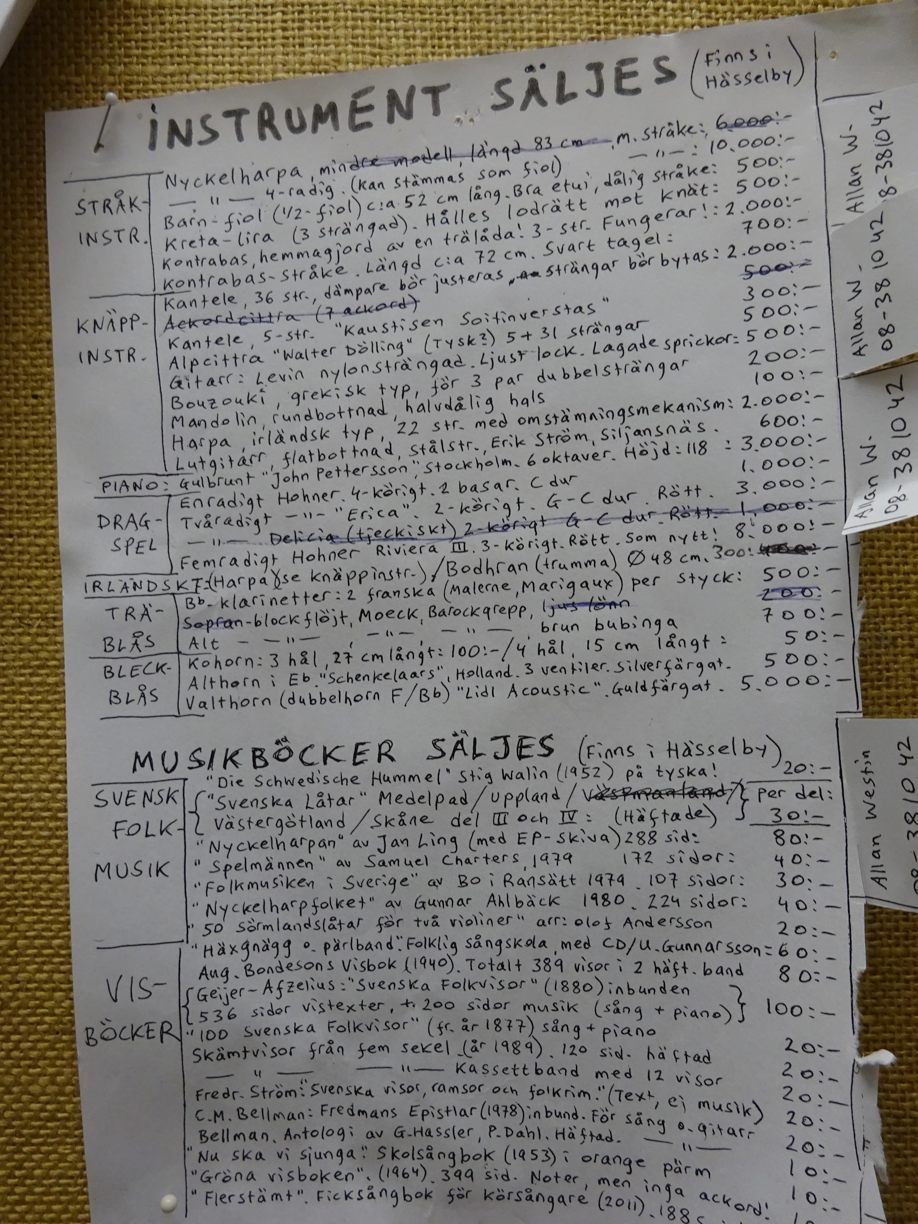 INSTRUMENT SÄLJES (Finns i Hässelby)
STRÅK-INSTR.
Nyckelharpa, mindre modell längd 83 cm. M. stråke: 6000:-
— " — 4-radig. (kan stämmas som fiol) — " — : 10.000:-
Barn-fiol (1/2-fiol) c:a 52 cm lång. Bra etui, dålig stråke: 500:-
Kreta-lira (3 strängad). Hålles lodrätt mot knät: 500:-
Kontrabas, hemmagjord av en trälåda! 3-str. Fungerar!: 2.000:-
Kontrabas-stråke. Längd c:a 72 cm. Svart tagel: 700:-
KNÄPP-INSTR.
Kantele, 36 str., dämpare bör justeras, strängar bör bytas: 2.000:-
Ackordcittra (7 ackord) 500:-
Kantele, 5-str. "Kaustisen Soitinverstas" 300:-
Alpcittra "Walter Dölling" (Tysk?) 5+31 strängar 500:-
Gitarr: Levin nylonsträngad. Ljust lock. Lagade sprickor: 500:-
Bouzouki, grekisk typ, för 3 par dubbelsträngar 200:-
Mandolin, rundbottnad, halvdålig hals 100:-
Harpa, irländsk typ, 22 str. med omstämningsmekanism: 2.000:-
Lutgitarr, flatbottnad, stålstr., Erik Ström, Siljansnäs. 600:-
PIANO: Gulbrunt "John Pettersson", Stockholm. 6 oktaver. Höjd: 118 : 3.000:-
DRAG-SPEL
Enradigt Hohner. 4-körigt. 2 basar. C dur 1.000:-
Tvåradigt — " — "Erica". 2-körigt. G-C dur. Rött. 3.000:-
— " — Delicia (tjeckiskt) 2-körigt G-C dur. Rött. 1.000:-
Femradigt Hohner Riviera III. 3-körigt. Rött. Som nytt! 8.000:-
IRLÄNDSKT: (Harpa se knäppinstr.) / Bodhran (trumma) Ø 48 cm. 300:-
TRÄ-BLÅS
Bb-klarinetter: 2 franska (Malerne, Marigaux) per styck: 500:-
Sopran-blockflöjt, Moeck, Barockgrepp, ljus lönn 200:-
Alt — " — , — " — , — " — , brun bubinga 700:-
BLECK-BLÅS
Kohorn: 3 hål, 27 cm långt: 100:- / 4 hål, 15 cm långt: 50:-
Althorn i Eb. "Schenkelaars", Holland. 3 ventiler. Silverfärgat. 500:-
Valthorn (dubbelhorn F/Bb) "Lidl Acoustic". Guldfärgat. 5.000:-
MUSIKBÖCKER SÄLJES (Finns i Hässelby)
SVENSK FOLK-MUSIK
"Die Schwedische Hummel" Stig Walin (1952) på tyska! 20:-
"Svenska Låtar" Medelpad/Uppland/Västmanland/ per del:
Västergötland/Skåne del III och IV: (Häftade) 30:-
"Nyckelharpan" av Jan Ling (med EP-skiva) 288 sid: 80:-
"Spelmännen" av Samuel Charters, 1979 172 sidor: 40:-
"Folkmusiken i Sverige" av Bo i Ransätt 1979. 107 sidor: 30:-
"Nyckelharpfolket" av Gunnar Ahlbäck 1980. 224 sidor: 40:-
"50 sörmlandslåtar för två violiner" arr: Olof Andersson 20:-
VIS-BÖCKER
"Häxgnägg o. pärlband": Folklig sångskola, med CD/U. Gunnarsson= 60:-
Aug. Bondesons Visbok (1940). Totalt 389 visor i 2 häft. band 80:-
Geijer-Afzelius: "Svenska Folkvisor" (1880) inbunden
536 sidor vistexter, + 200 sidor musik (sång + piano) 100:-
"100 Svenska Folkvisor" (fr. år 1877) sång + piano
Skämtvisor från fem sekel (år 1989). 120 sid. häftad 20:-
— " — — " — Kassettband med 12 visor 20:-
Fredr. Ström: "Svenska visor, ramsor och folkrim." (Text, ej musik) 20:-
C.M. Bellman: Fredmans Epistlar (1978) inbund. För sång o. gitarr 20:-
Bellman. Antologi av G. Hassler, P. Dahl. Häftad. — " — 20:-
"Nu ska vi sjunga": Skolsångbok (1953) i orange pärm 10:-
"Gröna visboken". (1964). 399 sid. Noter, men inga ackord! 10:-
"Flerstämt". Ficksångbok för körsångare (2011). 188
Allan W.
8-381042
Allan W
08-38 10 42
Allan W.
08-38 10 42
Allan Westin
08-38 10 42